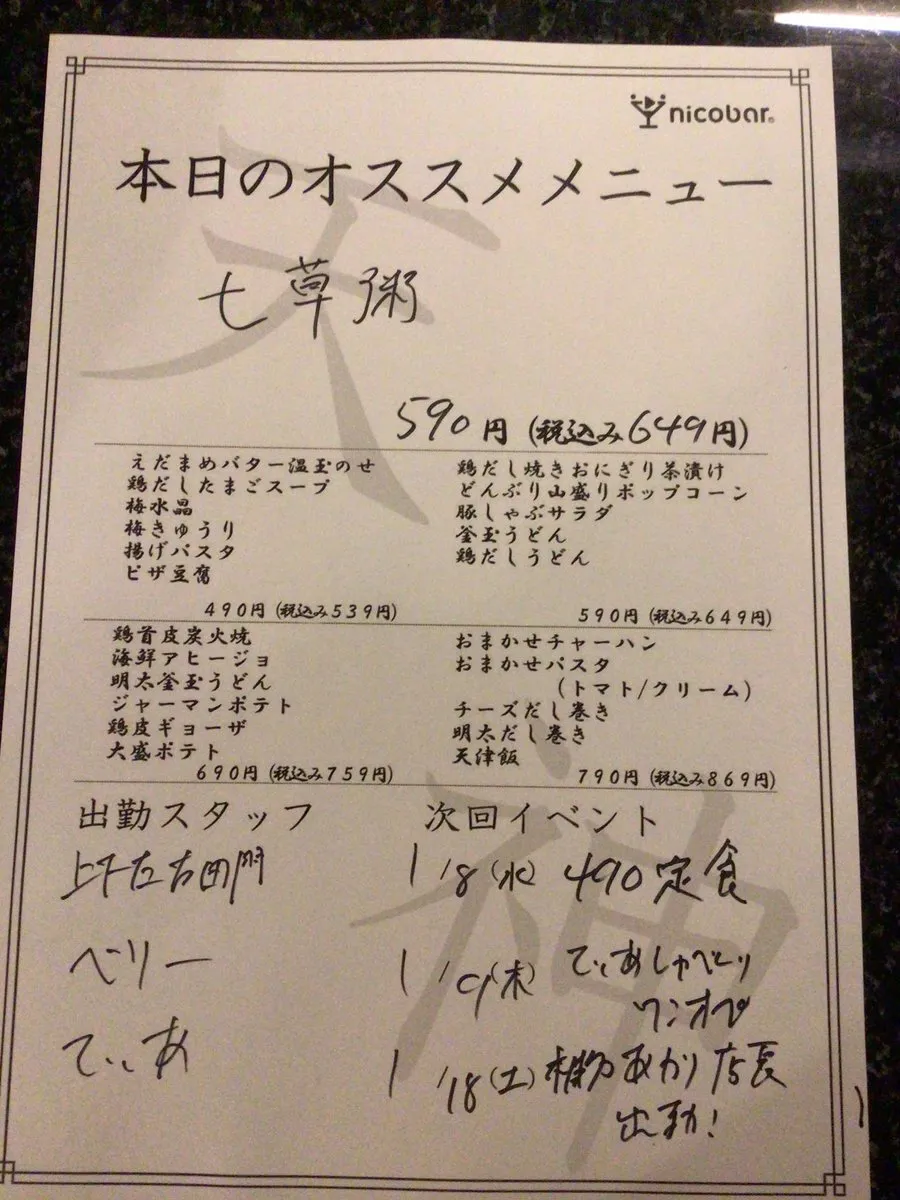 nicobar
本日のオススメメニュー
七草粥
590円 (税込み649円)
えだまめバター温玉のせ
鶏だしたまごスープ
梅水晶
梅きゅうり
揚げパスタ
ピザ豆腐
490円 (税込み539円)
鶏だし焼きおにぎり茶漬け
どんぶり山盛りポップコーン
豚しゃぶサラダ
釜玉うどん
鶏だしうどん
590円 (税込み649円)
鶏首皮炭火焼
海鮮アヒージョ
明太釜玉うどん
ジャーマンポテト
鶏皮ギョーザ
大盛ポテト
690円 (税込み759円)
おまかせチャーハン
おまかせパスタ
(トマト/クリーム)
チーズだし巻き
明太だし巻き
天津飯
790円 (税込み869円)
出勤スタッフ
上下左右田門
ベリー
てぃあ
次回イベント
1/8(水) 490定食
1/9(木) てぃあしゃべとり
ワンオペ
1/18(土) あかり店長
出勤!
天神